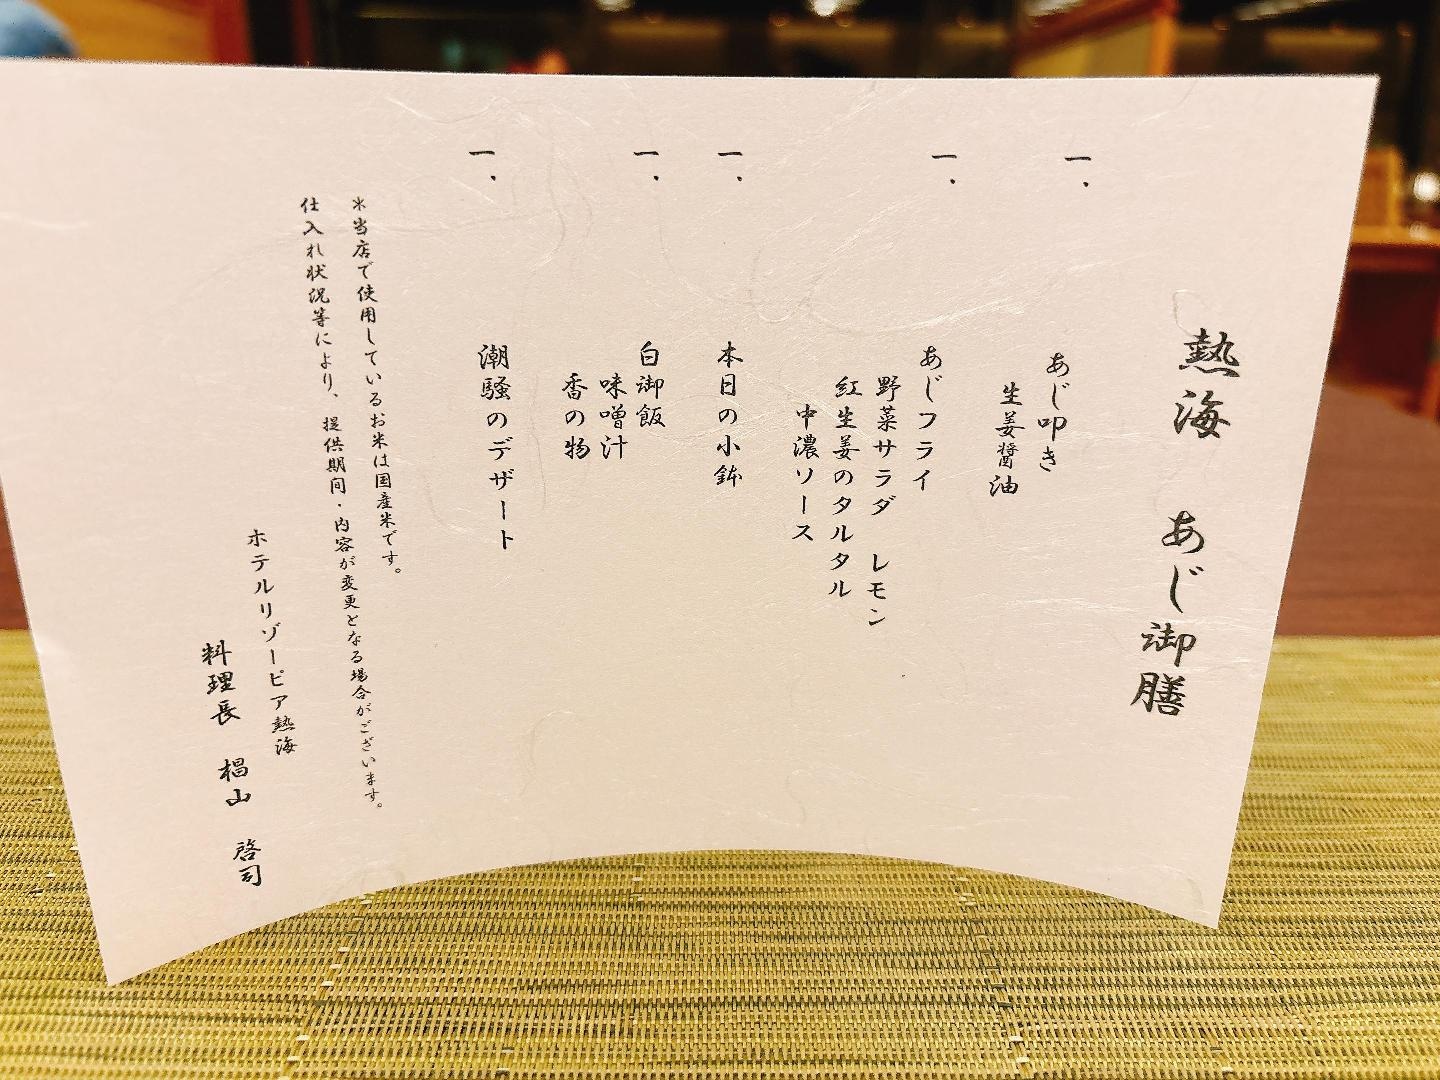 熱海　あじ御膳
一．あじ叩き
生姜醤油
一．あじフライ
野菜サラダ　レモン
紅生姜のタルタル
中濃ソース
一．本日の小鉢
一．白御飯
味噌汁
香の物
一．潮騒のデザート
＊当店で使用しているお米は国産米です。
仕入れ状況等により、提供期間・内容が変更となる場合がございます。
ホテルリゾーピア熱海
料理長　椙山　啓司